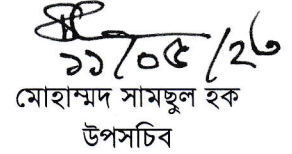 ১১/০৫/২৬
মোহাম্মদ সামছুল হক
উপসচিব